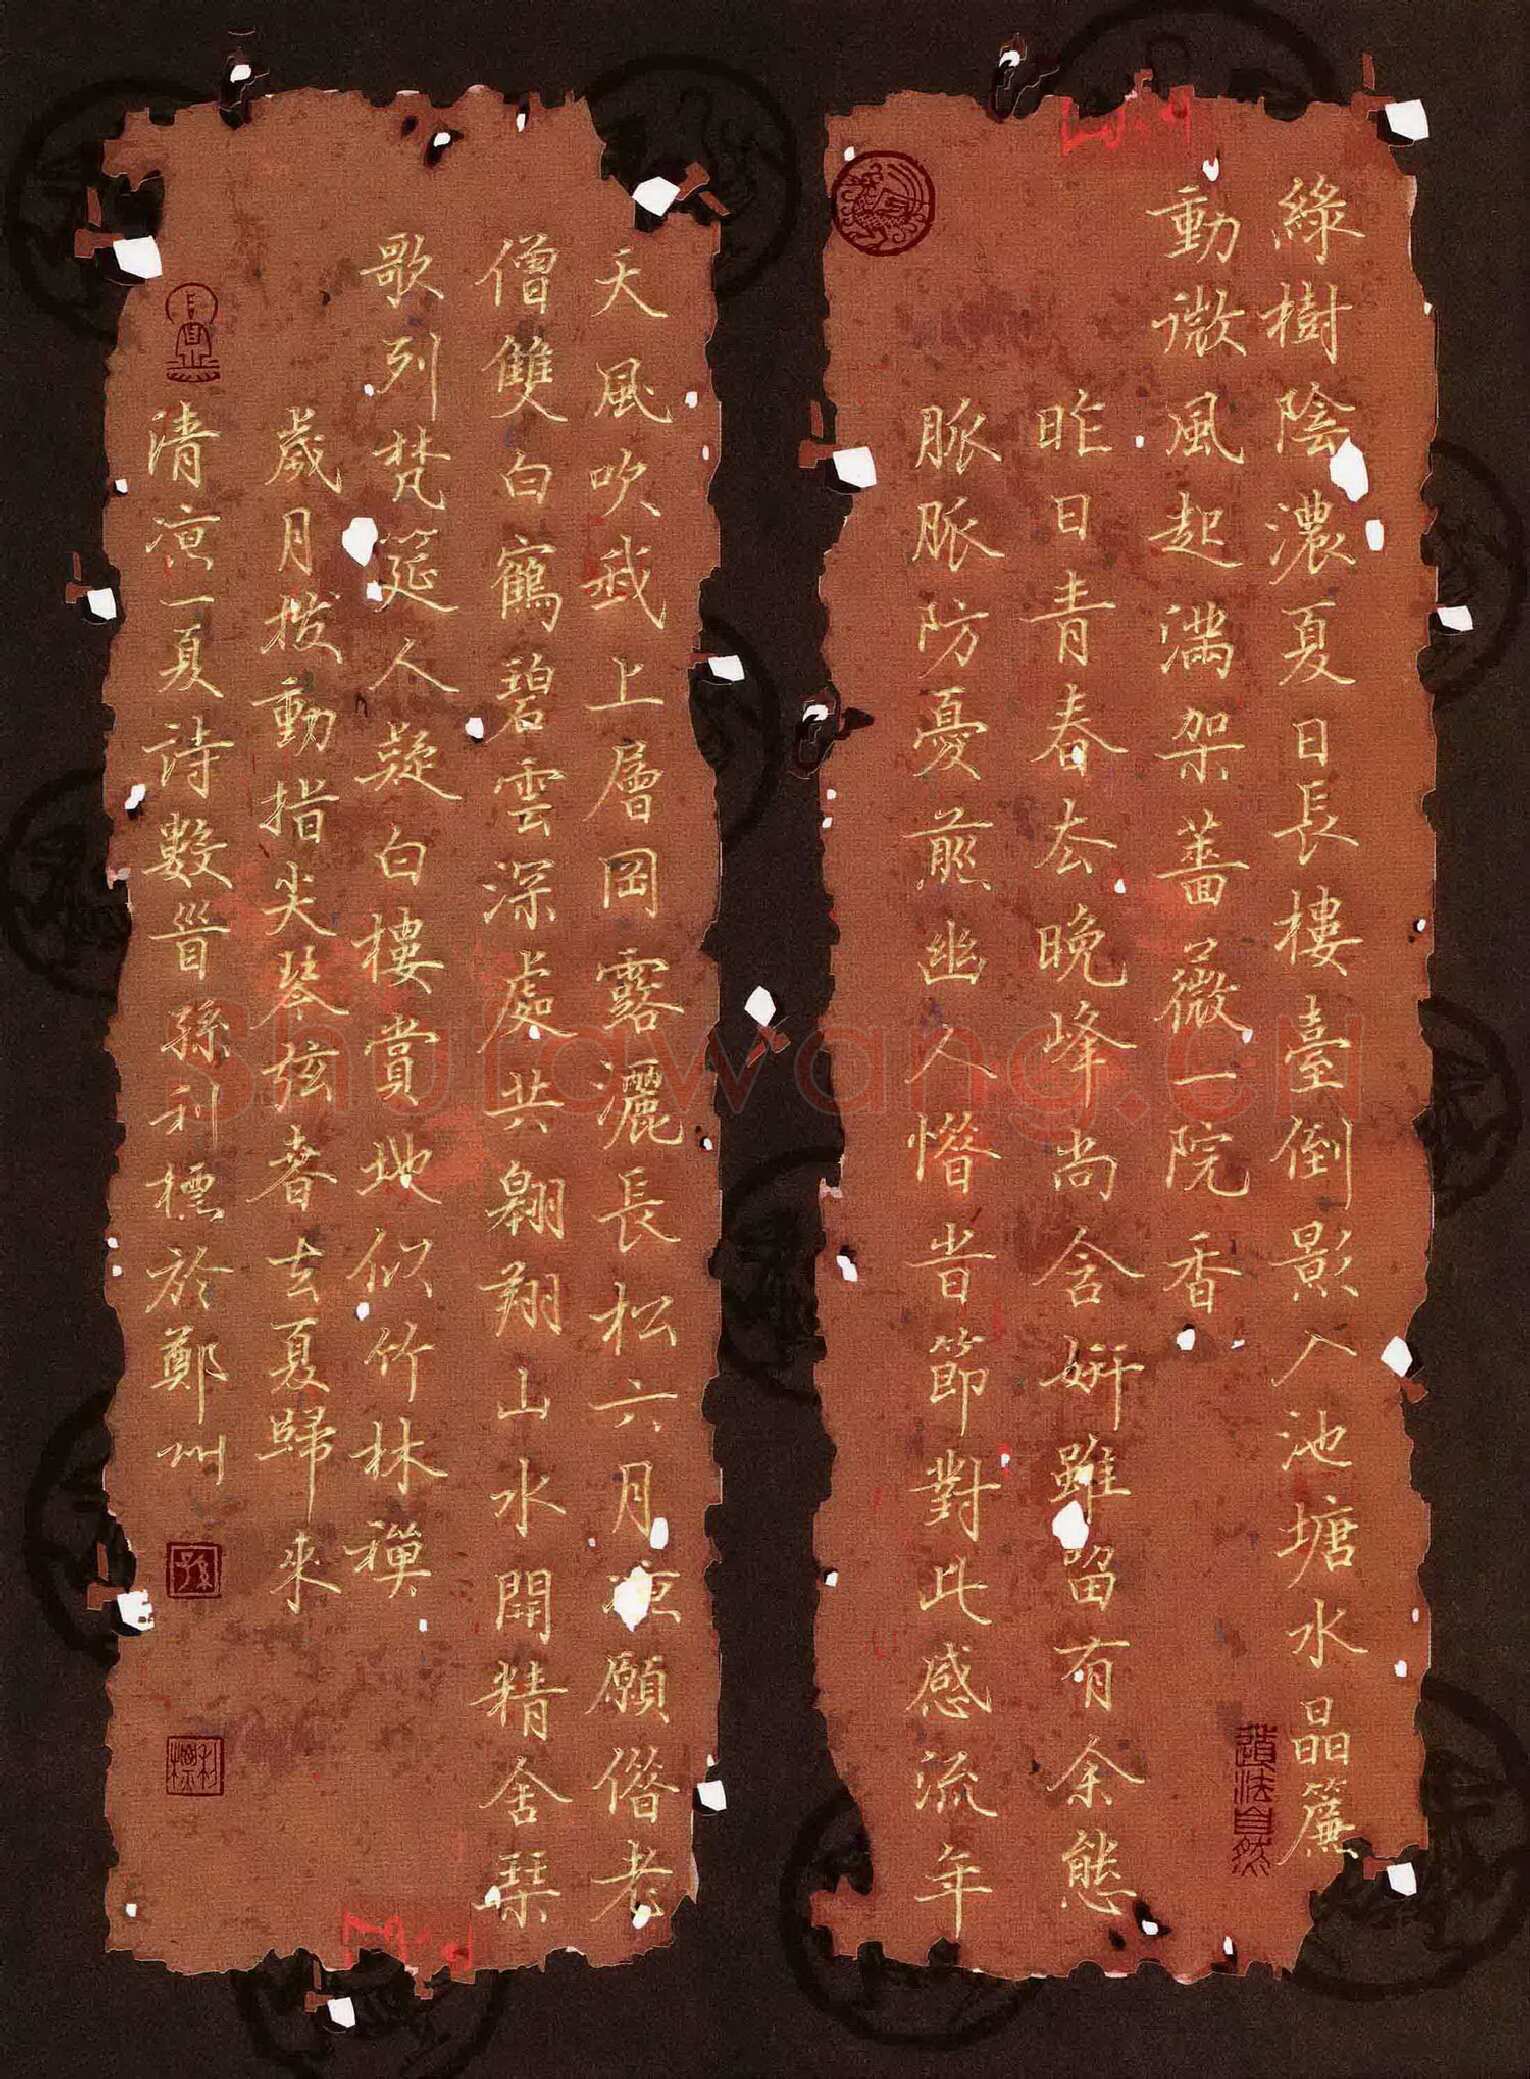 綠樹陰濃夏日長樓臺倒影入池塘水晶簾
動微風起滿架薔薇一院香
昨日青春去晚峰尚含妍雖留有余態
脈脈防憂煎幽人惜昔節對此感流年
天風吹我上層岡露灑長松六月涼願借老
僧雙白鶴碧雲深處共翱翔山水開精舍琴
歌列梵筵人疑白樓賞地似竹林禪
歲月撥動指尖琴弦春去夏歸來
清涼一夏詩數首孫利標於鄭州
道法自然
孫
利標
Shufawang.cn